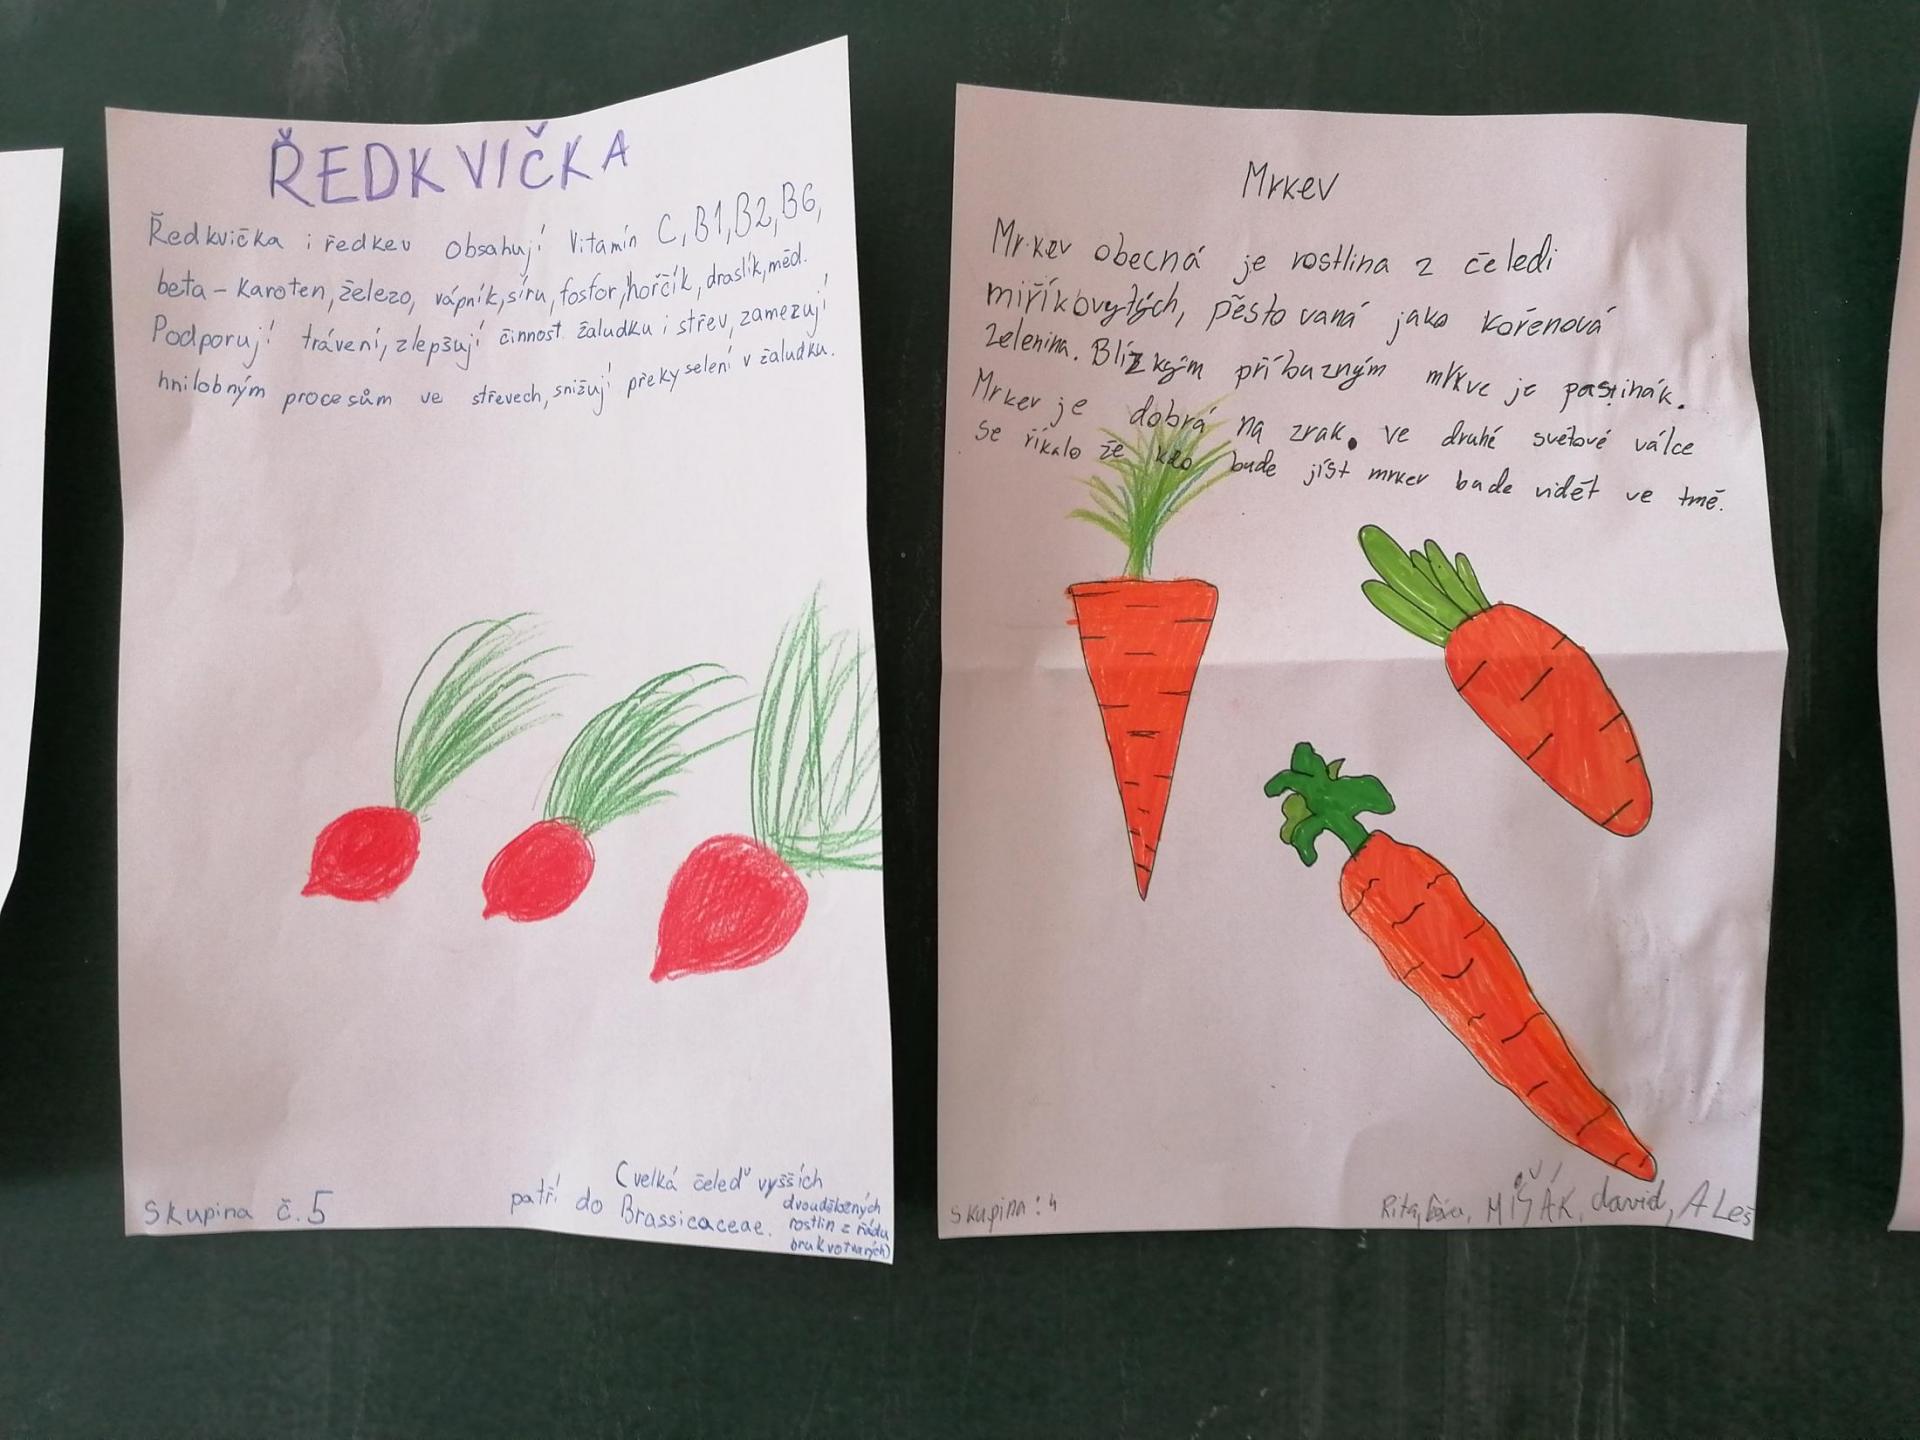 ŘEDKVIČKA
Ředkvička i ředkev obsahují Vitamín C, B1, B2, B6,
beta-karoten, železo, vápník, síru, fosfor, hořčík, draslík, měď.
Podporují trávení, zlepšují činnost žaludku i střev, zamezují
hnilobným procesům ve střevech, snižují překyselení v žaludku.
Skupina č. 5
(velká čeleď vyšších
patří do Brassicaceae. dvouděložných
rostlin z řádu
brukvotvarých)
Mrkev
Mrkev obecná je rostlina z čeledi
miříkovytých, pěstovaná jako kořenová
zelenina. Blízkým příbuzným mrkve je pastinák.
Mrkev je dobrá na zrak. ve druhé světové válce
se říkalo že kdo bude jíst mrkev bude vidět ve tmě.
Skupina: 4
Rita, MÍŠÁK, david, ALeš